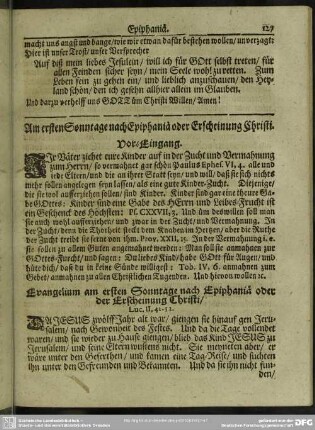 Epiphaniä. 127
macht uns angst und bange/wie wir etwan dafür bestehen wollen/unverzagt:
Hier ist unser Trost/unser Versprecher
Auf diß mein liebes Jesulein/ will ich für GOtt selbst treten/ für
allen Feinden sicher seyn/ mein Seele wohl zu retten. Zum
Leben fein zu gehen ein/ und lieblich anzuschauen/ den Hey-
land schön/ den ich gesehn allhier allein im Glauben.
Und darzu verhelff uns GOTT üm Christi Willen/ Amen!
Am ersten Sonntage nach Epiphaniä oder Erscheinung Christi.
Vor-Eingang.
Ihr Väter ziehet eure Kinder auf in der Zucht und Vermahnung
zum HErrn/ so vermahnet gar schön Paulus Ephes. VI, 4. alle und
iede Eltern/ und die an ihrer Statt seyn/ und will/ daß sie sich nichts
mehr sollen angelegen seyn lassen/ als eine gute Kinder-Zucht. Diejenige/
die sie wol aufferziehen sollen/ sind Kinder. Kinder sind gar eine theure Ga-
be GOttes: Kinder sind eine Gabe des HErrn und Leibes-Frucht ist
ein Geschenck des Höchsten: Ps. CXXVII, 3. Und üm deswillen soll man
sie auch wohl aufferziehen/ und zwar in der Zucht und Vermahnung. In
der Zucht/ denn die Thorheit steckt dem Knaben im Hertzen/ aber die Ruthe
der Zucht treibt sie ferne von ihm. Prov. XXII, 15. In der Vermahnung/ i. e.
sie sollen zu allem Guten angemahnet werden: Man soll sie anmahnen zur
GOttes-Furcht/ und sagen: Du liebes Kind/ habe GOtt für Augen/ und
hüte dich/ daß du in keine Sünde willigest: Tob. IV, 6. anmahnen zum
Gebet/ anmahnen zu allen Christlichen Tugenden. Und hievon wollen ꝛc.
Evangelium am ersten Sonntage nach Epiphaniä oder
der Erscheinung Christi/
Luc. II, 41-52.
DA JESUS zwölff Jahr alt war/ giengen sie hinauf gen Jeru-
salem/ nach Gewonheit des Festes. Und da die Tage vollendet
waren/ und sie wieder zu Hause giengen/ blieb das Kind JESUS zu
Jerusalem/ und seine Eltern wustens nicht. Sie meyneten aber/ er
wäre unter den Gefehrthen/ und kamen eine Tag-Reise/ und suchten
ihn unter den Gefreunden und Bekannten. Und da sie ihn nicht fun-
den/